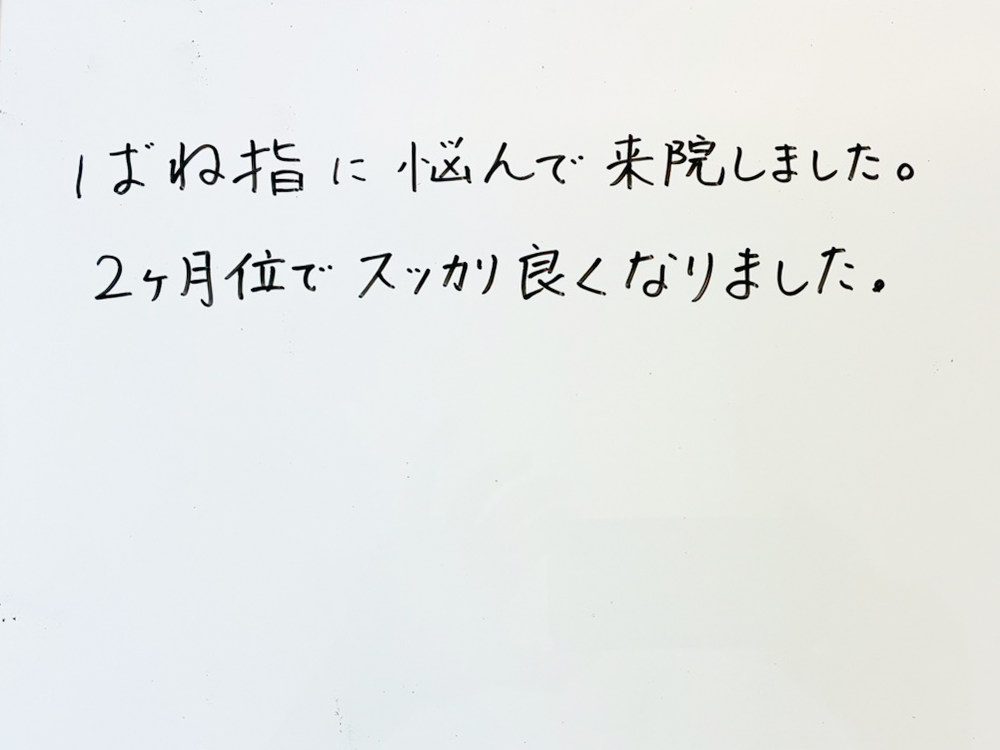 ばね指に悩んで来院しました。
2ヶ月位でスッカリ良くなりました。